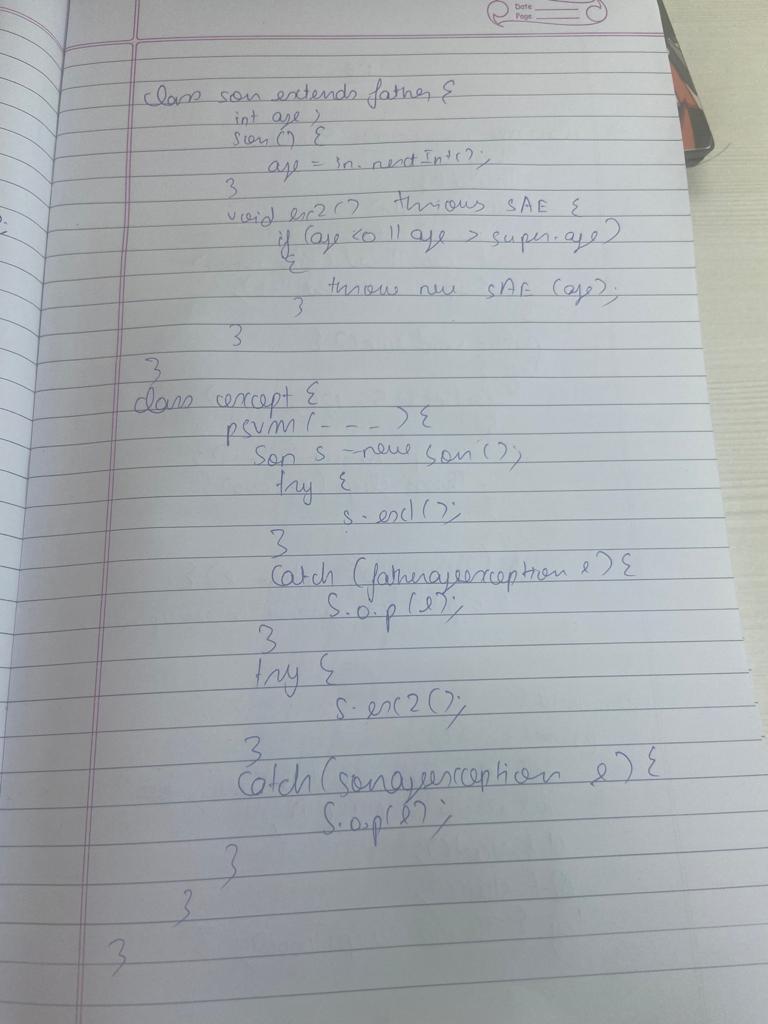 Date
Page
class son extends father {
int age ;
son() {
age = in.nextInt();
}
void ex2() throws SAE {
if (age <0 || age > super.age)
{
throw new SAE (age);
}
}
}
class except {
psvm (- - - ) {
Son s = new son();
try {
s.ex1();
}
catch (fatherageexception e) {
S.o.p(e);
}
try {
s.ex2();
}
catch(sonageexception e) {
S.o.p(e);
}
}
}